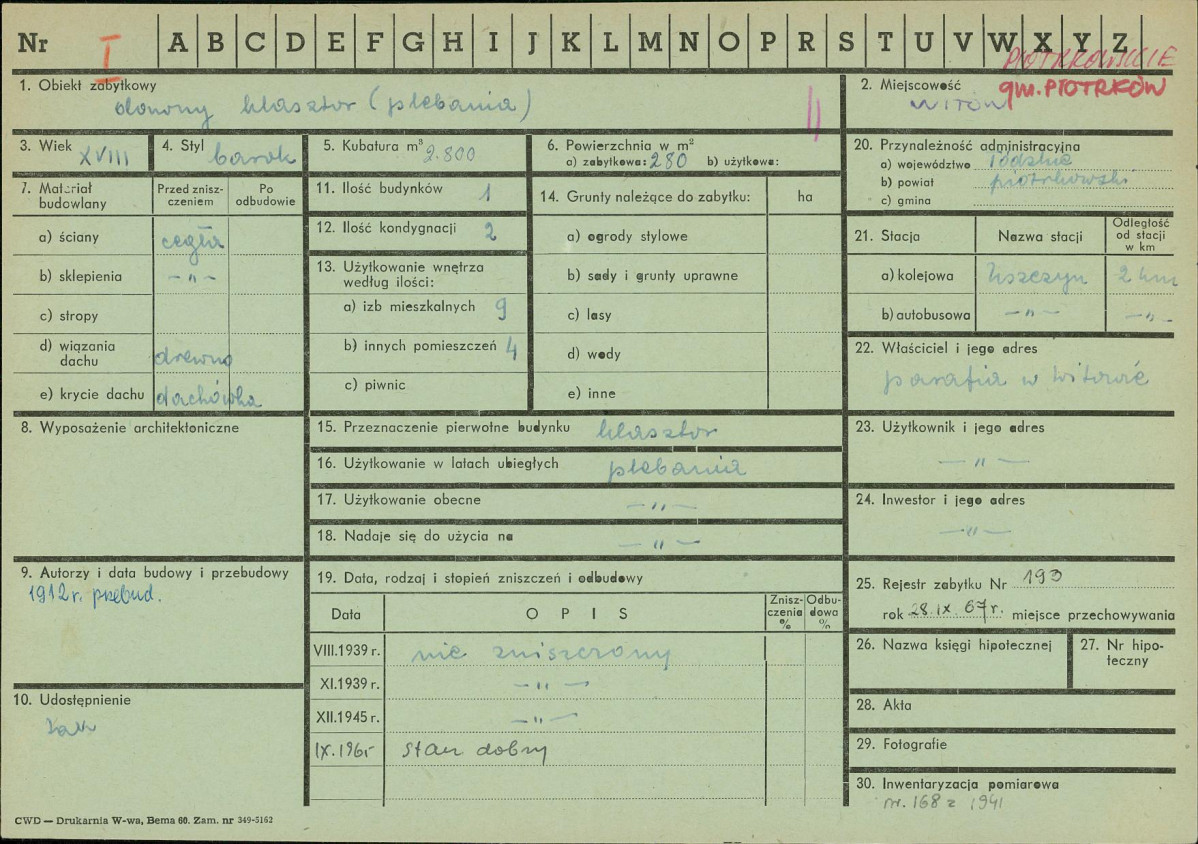 Nr I A B C D E F G H I J K L M N O P R S T U V W X Y Z
PIOTRKOWSKIE
1. Obiekt zabytkowy
dawny klasztor (plebania)
II
2. Miejscowość
gm. PIOTRKÓW
WITÓW
3. Wiek XVIII
4. Styl barok
5. Kubatura m³ 2.800
6. Powierzchnia w m²
a) zabytkowa: 280 b) użytkowa:
20. Przynależność administracyjna
a) województwo łódzkie
b) powiat piotrkowski
c) gmina
7. Materiał budowlany
Przed zniszczeniem
Po odbudowie
a) ściany cegła
b) sklepienia —„—
c) stropy
d) wiązania dachu drewno
e) krycie dachu dachówka
11. Ilość budynków 1
12. Ilość kondygnacji 2
13. Użytkowanie wnętrza
według ilości:
a) izb mieszkalnych 9
b) innych pomieszczeń 4
c) piwnic
14. Grunty należące do zabytku: ha
a) ogrody stylowe
b) sady i grunty uprawne
c) lasy
d) wody
e) inne
21. Stacja
Nazwa stacji
Odległość
od stacji
w km
a) kolejowa Uszczyn 2 km
b) autobusowa —„— —„—
22. Właściciel i jego adres
parafia w Witowie
8. Wyposażenie architektoniczne
15. Przeznaczenie pierwotne budynku klasztor
16. Użytkowanie w latach ubiegłych plebania
17. Użytkowanie obecne —„—
18. Nadaje się do użycia na —„—
23. Użytkownik i jego adres
—„—
24. Inwestor i jego adres
—„—
9. Autorzy i data budowy i przebudowy
1912 r. przebud.
10. Udostępnienie
tak
19. Data, rodzaj i stopień zniszczeń i odbudowy
Data
OPIS
Znisz-
czenia
%
Odbu-
dowa
%
VIII.1939 r. nie zniszczony
XI.1939 r. —„—
XII.1945 r. —„—
IX.1965 stan dobry
25. Rejestr zabytku Nr 193
rok 28.IX.67 r. miejsce przechowywania
26. Nazwa księgi hipotecznej
27. Nr hipo-
teczny
28. Akta
29. Fotografie
30. Inwentaryzacja pomiarowa
nr. 168 z 1941
CWD — Drukarnia W-wa, Bema 60. Zam. nr 349-5162